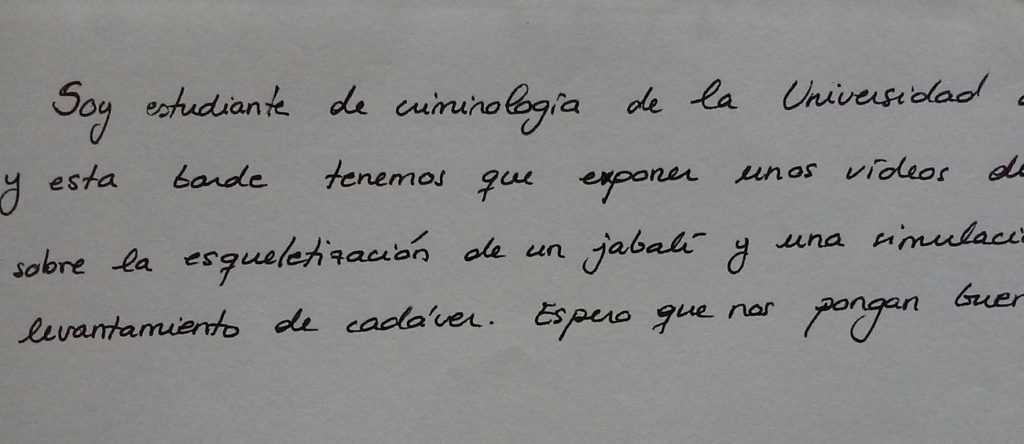 Soy estudiante de criminología de la Universidad
y esta tarde tenemos que exponer unos vídeos de
sobre la esqueletización de un jabalí y una simulaci
levantamiento de cadáver. Espero que nos pongan buen